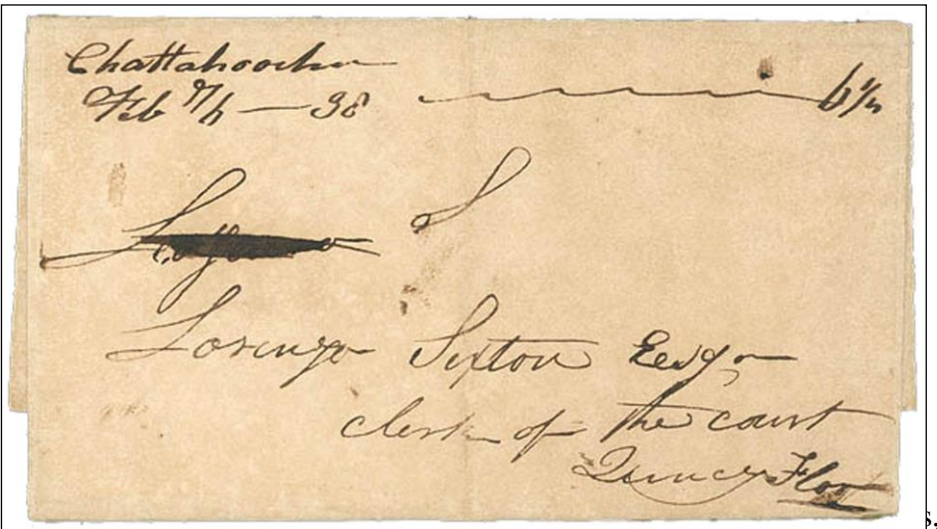 Chattahoochee
Feb 7th — 38 6¼
S
Lorenzo Sexton Esqr
clerk of the court
Quincy Flor
s.